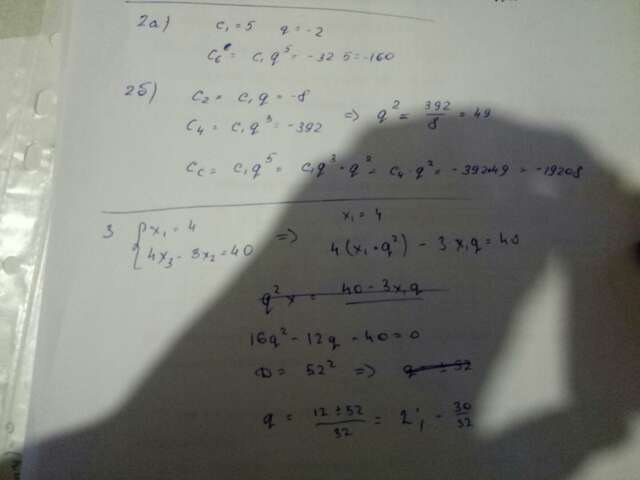 2а) c₁ = 5 q = -2
c₆ = c₁q⁵ = -32·5 = -160
2б) c₂ = c₁q = -8
c₄ = c₁q³ = -392 => q² = 392/8 = 49
c₆ = c₁q⁵ = c₁q³·q² = c₄·q² = -392·49 = -19208
3 { x₁ = 4 => x₁ = 4
4x₃ - 3x₂ = 40 4(x₁·q²) - 3x₁q = 40
q²x = 40 - 3x₁q
16q² - 12q - 40 = 0
D = 52² => q = ± 52
q = 12 ± 52 / 32 = 2; - 30/32